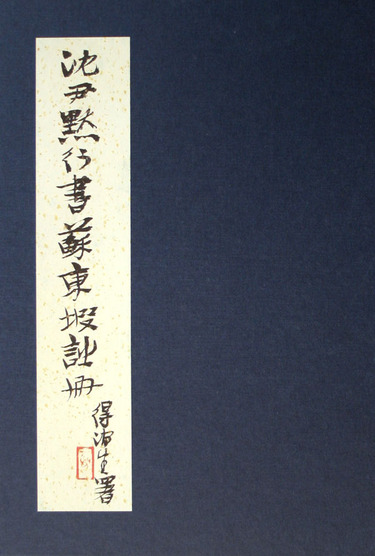 沈尹默行書蘇東坡詩冊
得涵生署